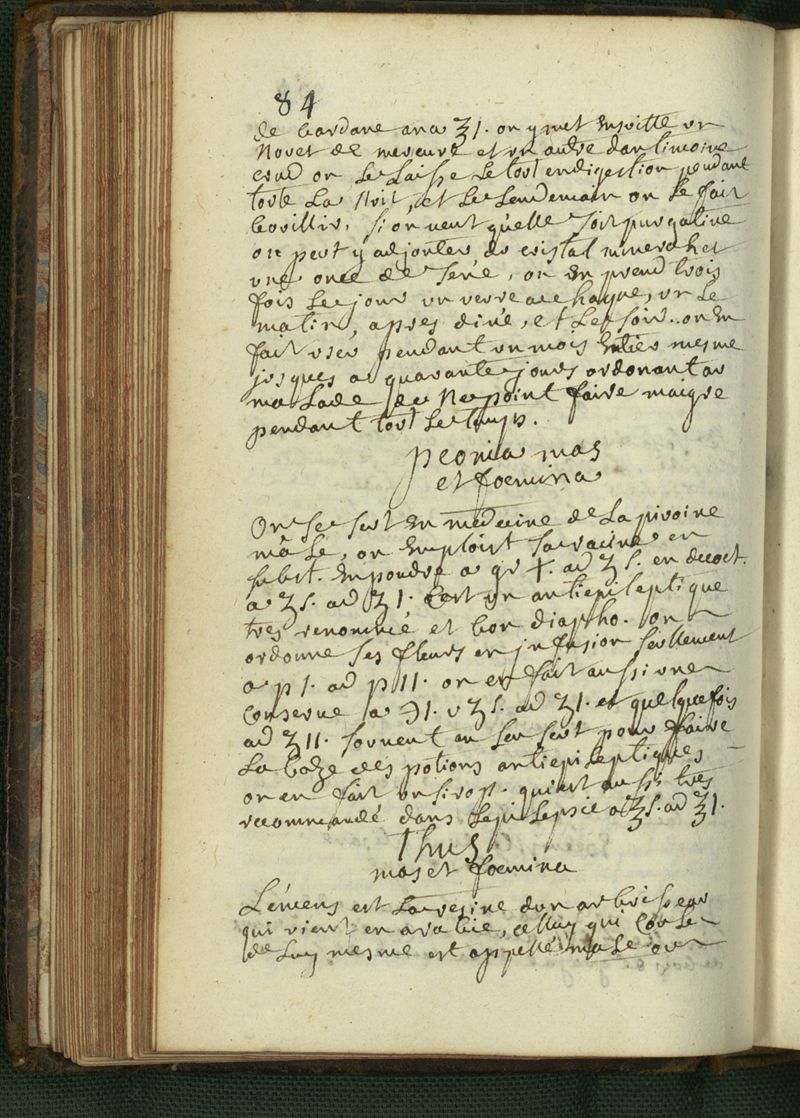 84
de bardane ana ʒ1. on y met Ensuitte un
Nouet de mercure et un autre dantimoine
crud on Le Laisse Le tout en digestion pendant
toute La Nuit, et Le Lendemain on Le fait
bouillir, si on veut qu'elle soit purgative
on peut y adjouter du cristal mineral et
une once de sené, on En prend trois
fois Le jour un verre a chaque, un Le
matin, apres diné, et Le soir.. on En
fait user pendant un mois Entier mesme
jusques a quarante jours ordonant au
malade de Ne point faire maigre
pendant tout Le temps.
peonia mas
et foemina
On Se sert En medecine de La pivoine
mâle, on Emploit Sa racine en
subst. En poudre a gr X. ad ʒ s. en decoct.
a ʒ s. ad ʒ1. C'est un antiepileptique
tres renommé et bon diapho. on
ordonne Ses fleurs en jnfusion seullement
a p 1. ad p 11. on en fait aussi une
Conserve a ℈1. v ʒ s. ad ʒ1. et quelquefois
ad ʒ11. souvent on sen sert pour faire
La baze des potions antiepileptiques
on en fait un sirop. qui est aussi tres
recommandé dans Lepilepsie a ʒ s. ad ʒ1.
Thus
mas et foemina
L'emens est La resine dun arbrisseau
qui vient en arabie, celluy qui Coule
de Luy mesme est appellé male ou